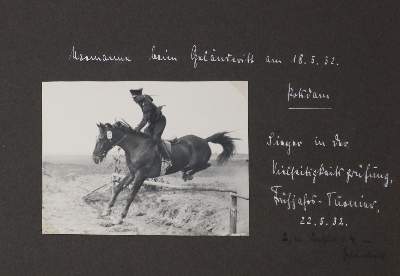 beim Geländeritt am 18.5.32.
Potsdam
Sieger in der
Vielseitigkeitsprüfung,
Frühjahrs-Turnier,
22.5.32.